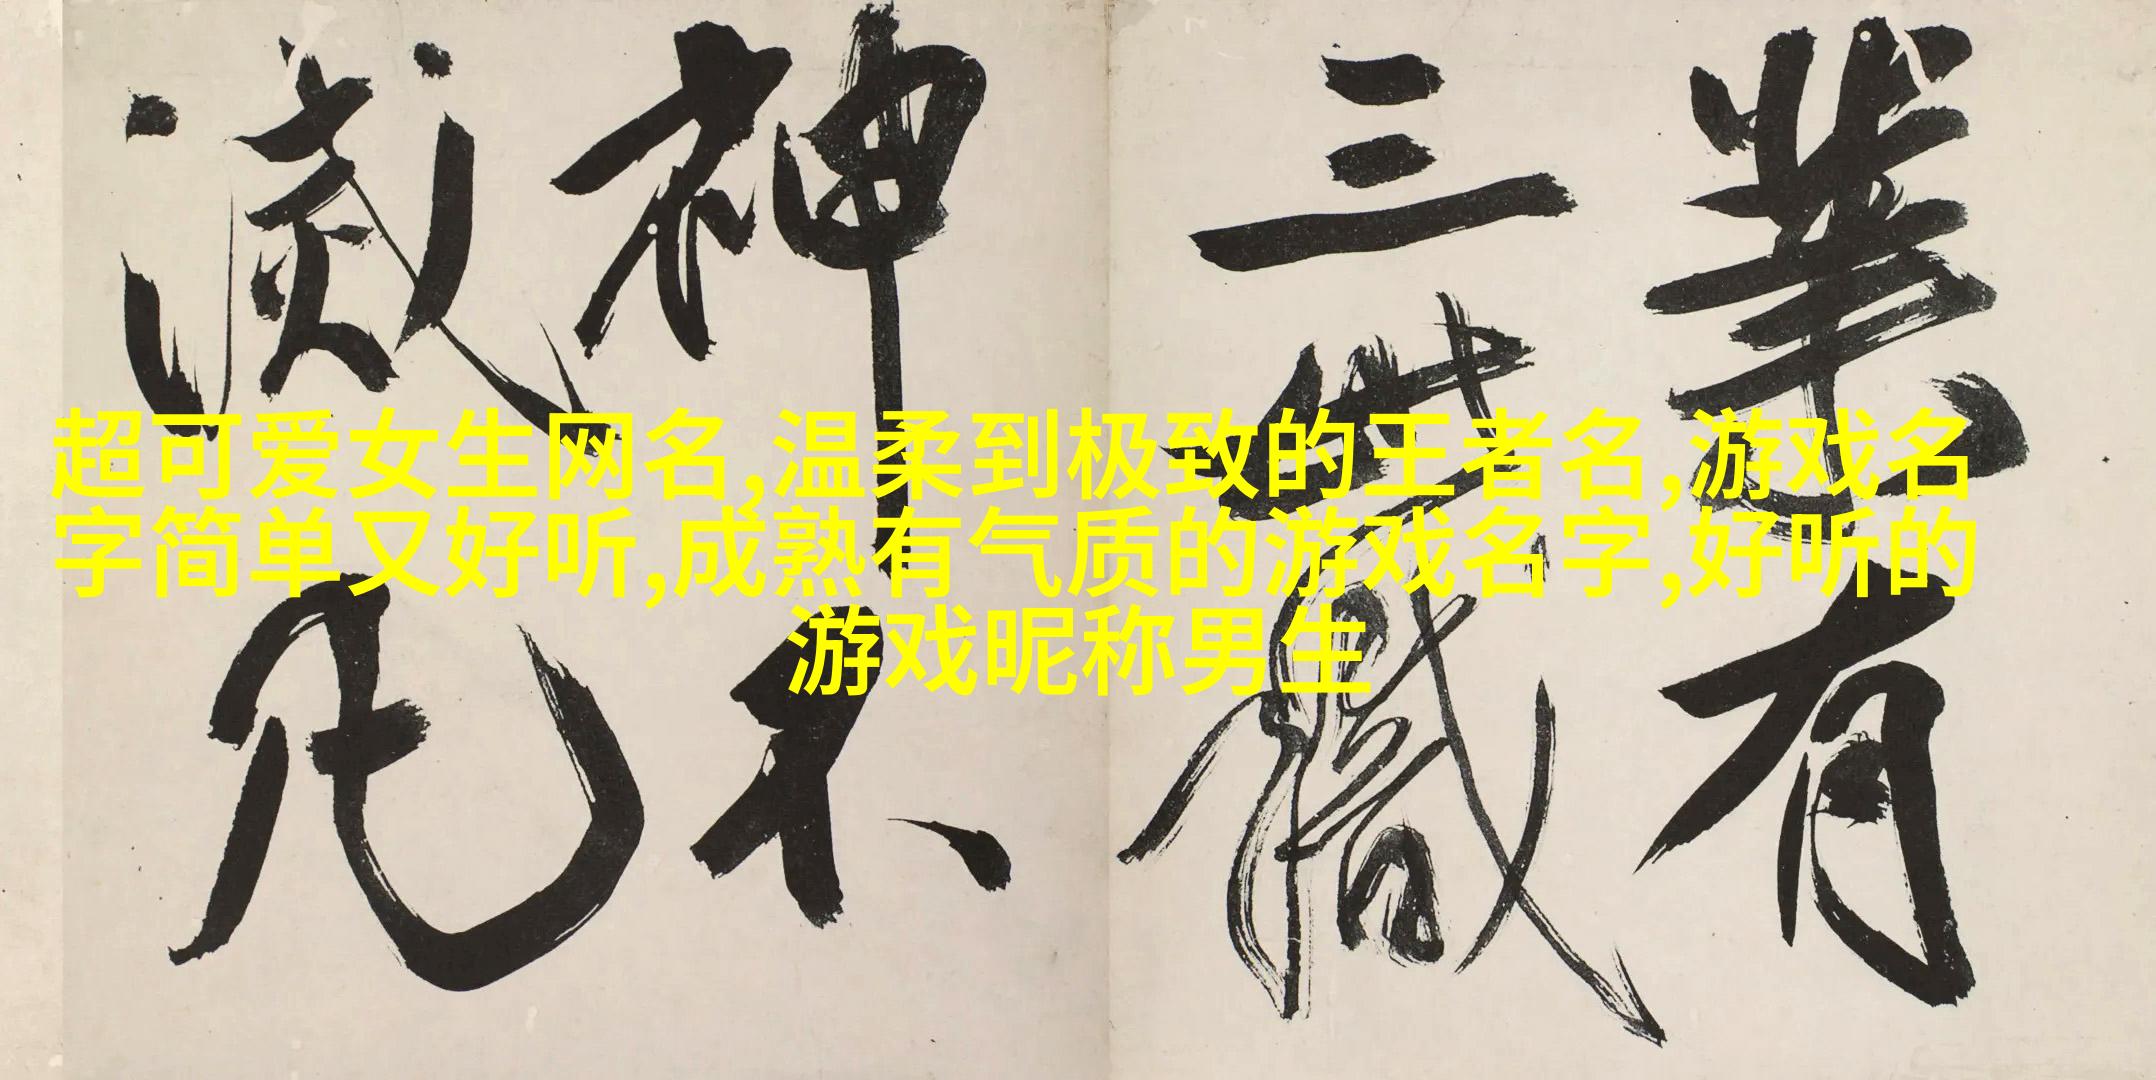 業有
三世識
神不
滅凡
超可爱女生网名,温柔到极致的王者名,游戏名
字简单又好听,成熟有气质的游戏名字,好听的
游戏昵称男生